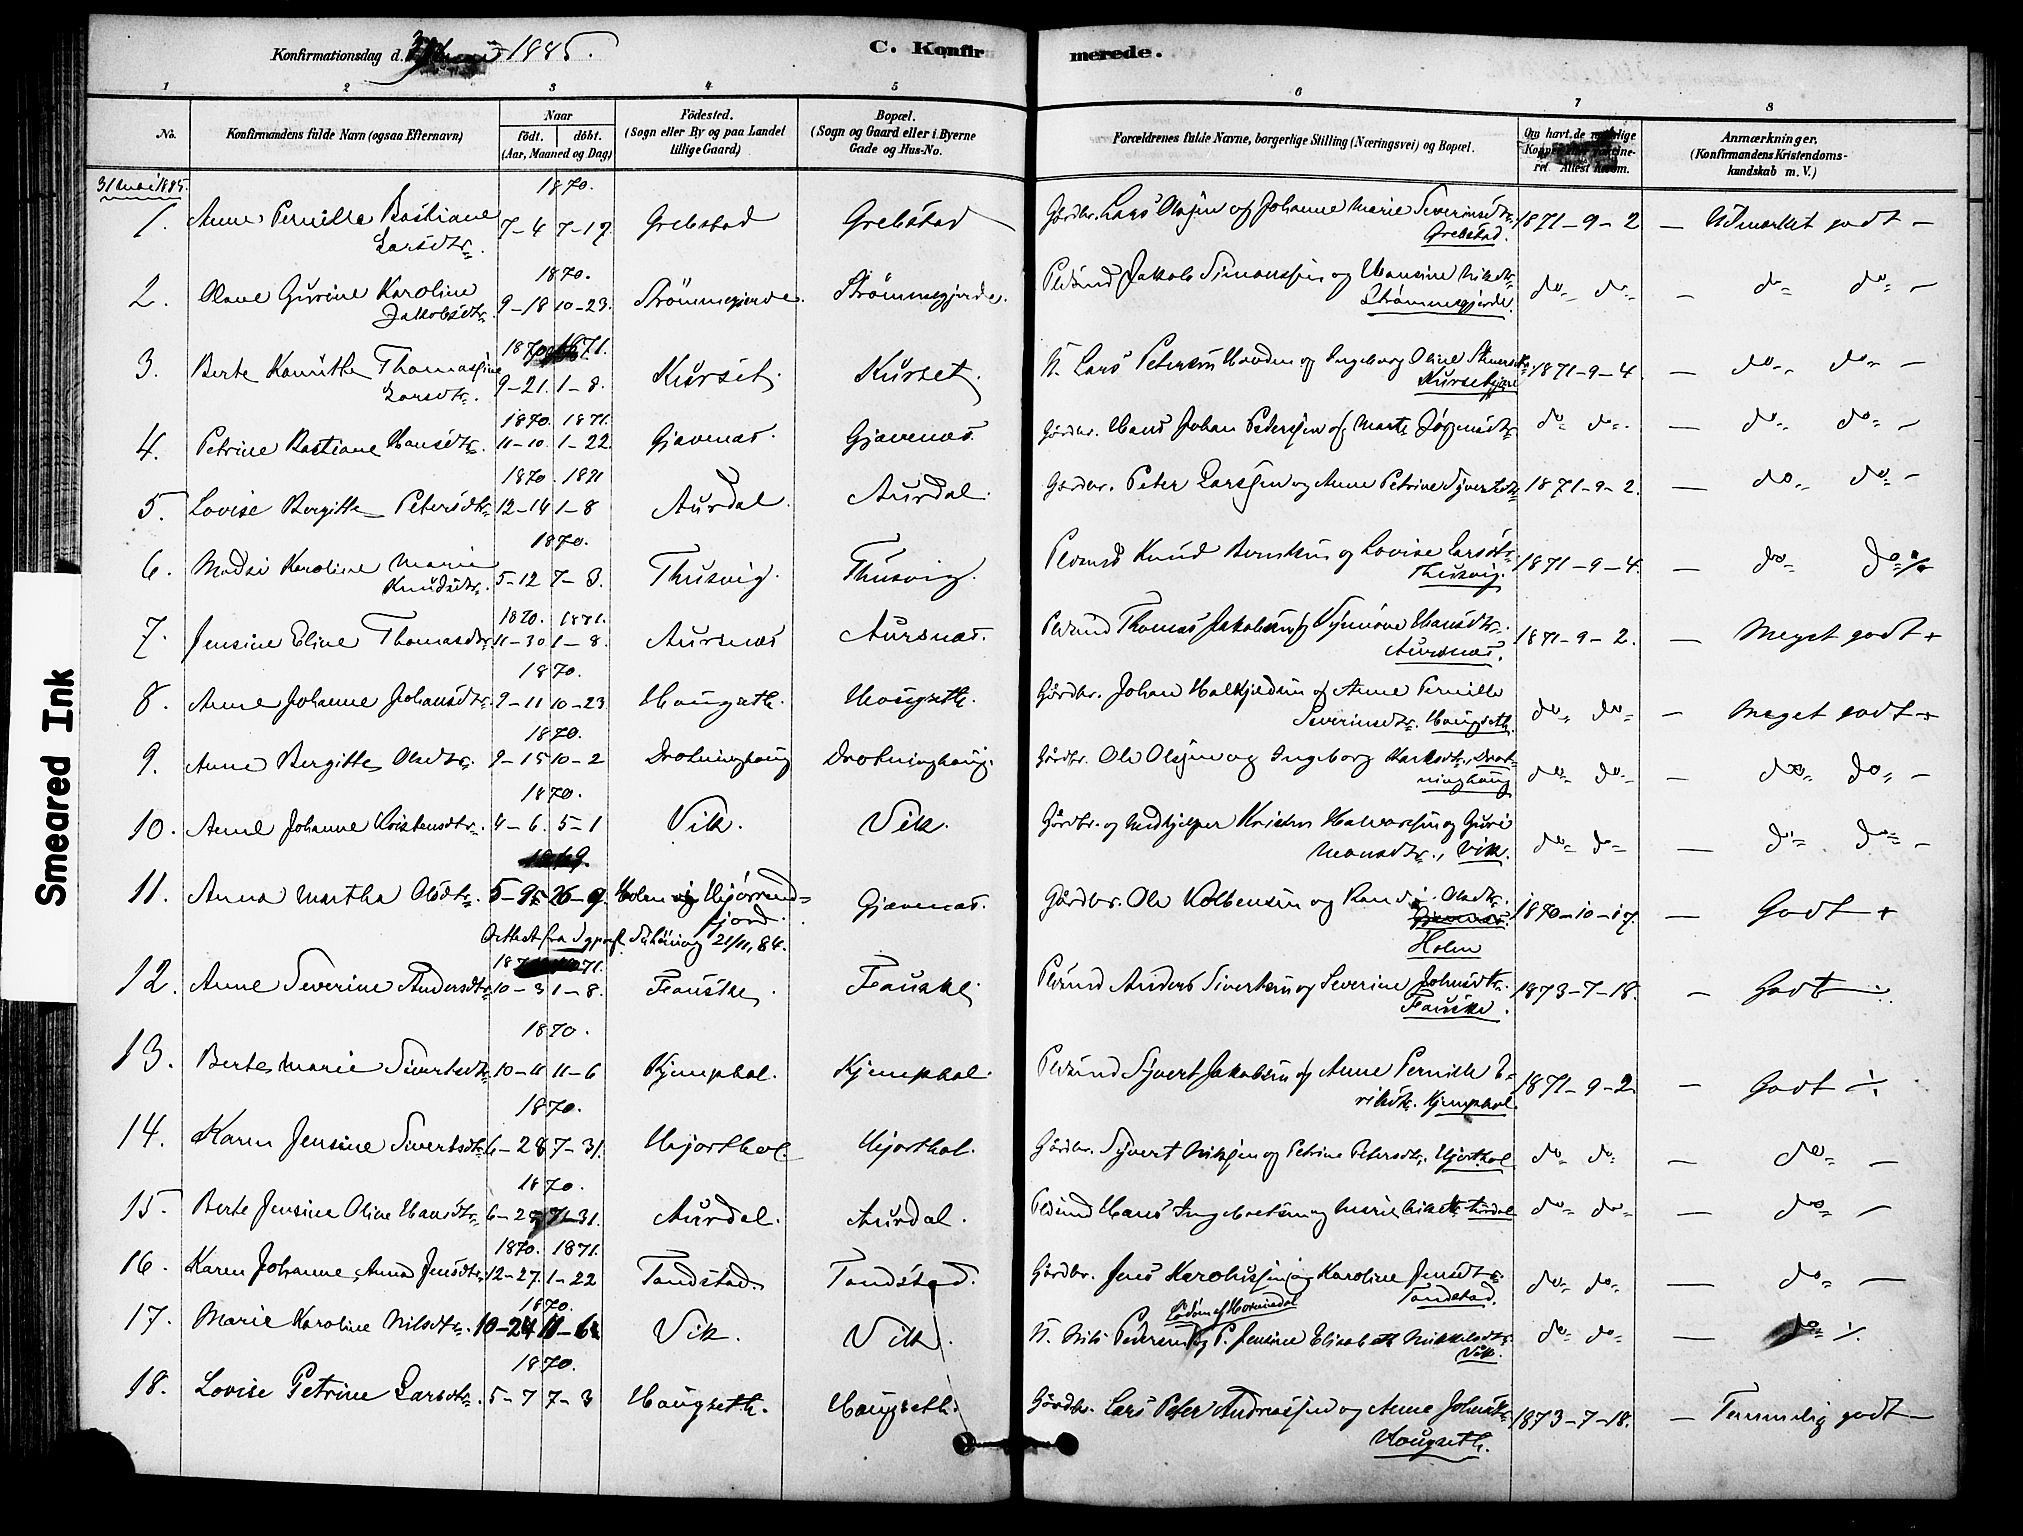 Konfirmationsdag d. 1885.
C. Konfirmerede.
1 2 3 4 5 6 7 8
No.
Konfirmandens fulde Navn (ogsaa Efternavn)
Naar
født. døbt.
(Aar, Maaned og Dag)
Fødested.
(Sogn eller By og paa Landet
tillige Gaard)
Bopæl.
(Sogn og Gaard eller i Byerne
Gade og Hus-No.
Forældrenes fulde Navne, borgerlige Stilling (Næringsvei) og Bopæl.
Om havt de naturlige
Anmærkninger.
(Konfirmandens Kristendoms-
kundskab m. V.)
31 mai 1885.
1870.
1. Anne Pernille Bastiane Larsdtr. 7-4 7-17 Grebstad Grebstad Gårdbr. Lars Olsen og Johanne Marie Severinsdtr. Grebstad. 1871-9-2 - Udmærket godt -
1870.
2. Olave Gurine Karoline Jakobsdtr. 9-18 10-23. Strømmegjerde. Strømmegjerde. Plsmd Jakob Simonssen og Hansine Strømmegjerde. do do - do do -
1870 1871.
3. Berte Knuthe Thomasine Larsdtr. 9-21. 1-8. Kurset. Kurset. Lars Petersen og Ingeborg Oline 1871-9-4. - do do -
1870. 1871.
4. Petrine Bastiane Hansdtr. 11-10. 1-22. Gjævenæs. Gjævenæs. Gårdbr. Hans Johan Pedersen og Marte do do - do do -
1870. 1871
5. Lovise Bergitte Petersdtr. 12-14 1-8 Aurdal. Aurdal. Gårdbr. Peter Larssen og Anne Petrine Sjvertsdtr. 1871-9-2. - do do -
1870.
6. Madsi Karoline Marie Knudsdtr. 5-12 7-3. Thusvig. Thusvig. Plsmd Knud Berntsen og Lovise Larsdtr. Thusvig. 1871-9-4. - do do
1870. 1871.
7. Jensine Eline Thomasdtr. 11-30 1-8. Aursnæs Aursnæs. Plsmd Thomas Jakobsen og Synnøve Hansdtr. Aursnæs. 1871-9-2. - Meget godt +
1870.
8. Anne Johanne Johansdtr. 9-11 10-23 Haugseth. Haugseth. Gårdbr. Johan og Anne Pernille Severinsdtr. Haugseth. do do - Meget godt +
1870.
9. Anne Bergitte Olsdtr. 9-15 10-2 Drotninghaug Drotninghaug. Gårdbr. Ole Olsen og Ingeborg Drotninghaug do do - do do -
1870.
10. Anne Johanne Kristensdtr. 4-6. 5-1 Vik. Vik. Gårdbr. og Medhjelper Kristen og Guri Monsdtr., Vik. do do - do do -
1869.
11. Anna Martha Olsdtr. Holen i Hjørrendfjord. Gjævenæs. Gårdbr. Ole Kolbensen og Randi Olsdtr. Holen 1870-10-17. - Godt +
Attest fra Sgprst. 21/11, 84.
12. Anne Severine Andersdtr. 10-3 1-8. Fauske Fauske Plsmd Anders Sivertsen og Severine Johnsdtr. Fauske. 1873-7-18. - Godt
1870.
13. Berte Marie Sivertsdtr. 10-11 11-6 Kjemphol. Kjemphol. Plsmd Syvert Jakobsen og Anne Pernille Eriksdtr. Kjemphol. 1871-9-2. - Godt
1870.
14. Karen Jensine Sivertsdtr. 6-28 7-31. Hjorthol. Hjorthol. Gårdbr. Syvert Nilssen og Petrine Petersdtr. Hjorthol do do - do -
1870.
15. Berte Jensine Oline Hansdtr. 7-31. Aurdal. Aurdal. Plsmd Hans Ingebretsen og Marie Aurdal do do - do -
1870. 1871.
16. Karen Johanne Anna Jensdtr. 12-27. 1-22 Tandstad. Tandstad. Gårdbr. Jens Karolussen og Karoline Jensdtr. Tandstad. do do - do -
1870.
17. Marie Karoline Nilsdtr. 10-24 11-6. Vik. Vik. Nils Pedersen og P. Jensine Elisabeth Mikkelsdtr. Vik. do do - do
1870.
18. Lovise Petrine Larsdtr. 5-7 7-3 Haugseth. Haugseth. Gårdbr. Lars Peter Andreassen og Anne Johnsdtr. Haugseth. 1873-7-18. - Temmelig godt -
Smeared Ink